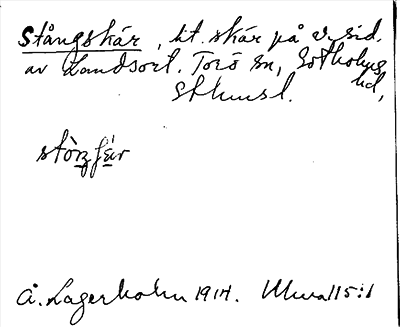 Stångskär, lit. skär på v. sid.
av Landsort. Torö sn, Sotholms
hd,
Sthmsl.
stòŋʃä̀r
Å. Lagerholm 1914. 115:1